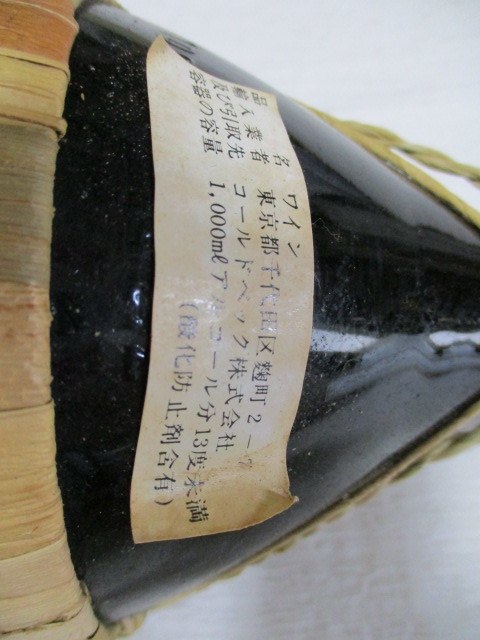 品名 ワイン
輸入業者 東京都千代田区麹町2-7
及び引取先 コールドベック株式会社
容器の容量 1,000mlアルコール分13度未満
(酸化防止剤含有)